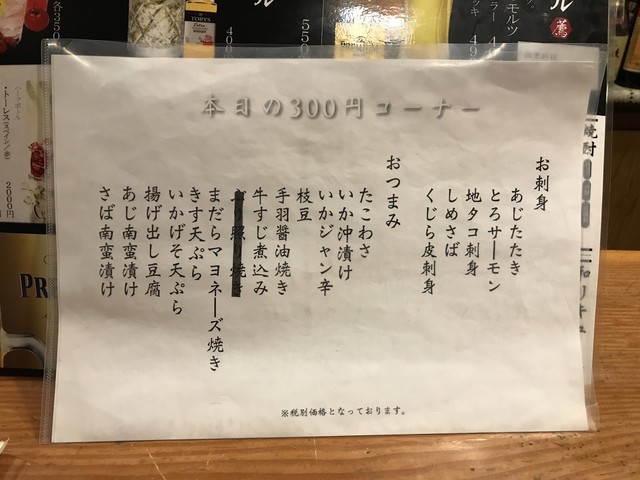 本日の300円コーナー
お刺身
あじたたき
とろサーモン
地タコ刺身
しめさば
くじら皮刺身
おつまみ
たこわさ
いか沖漬け
いかジャン辛
枝豆
手羽醤油焼き
牛すじ煮込み
ぶり照り焼き
まだらマヨネーズ焼き
きす天ぷら
いかげそ天ぷら
揚げ出し豆腐
あじ南蛮漬け
さば南蛮漬け
※税別価格となっております。
各350
ハーフボトル
・トーレス(スペイン/赤)
2000円
TORYS
400
550
モルツ
ラー
ッキ
ル
薦
焼酎
和リキュ
PR